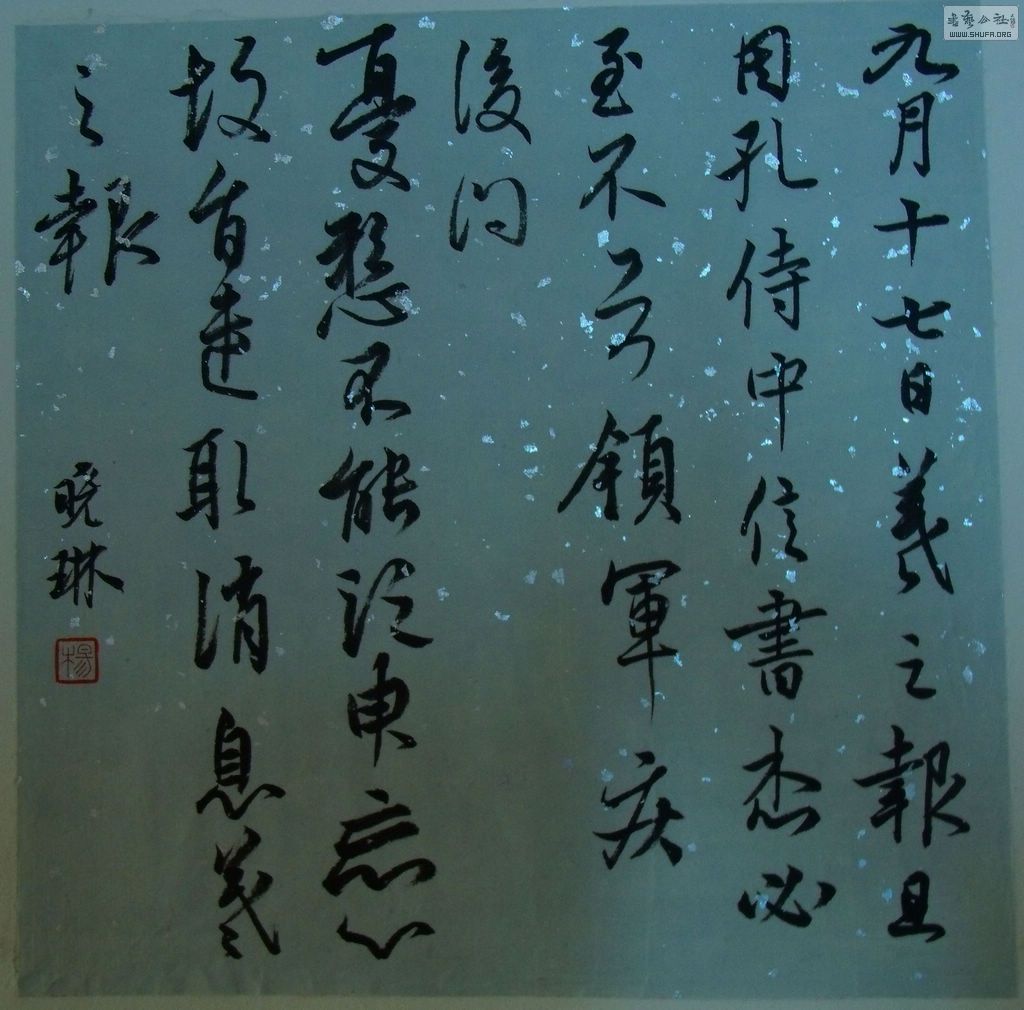 九月十七日羲之報且
因孔侍中信書想必
至不知領軍疾
後問
憂懸不能須臾忘心
故旨遣取消息羲
之報
晓琳
楊
書藝公社
WWW.SHUFA.ORG